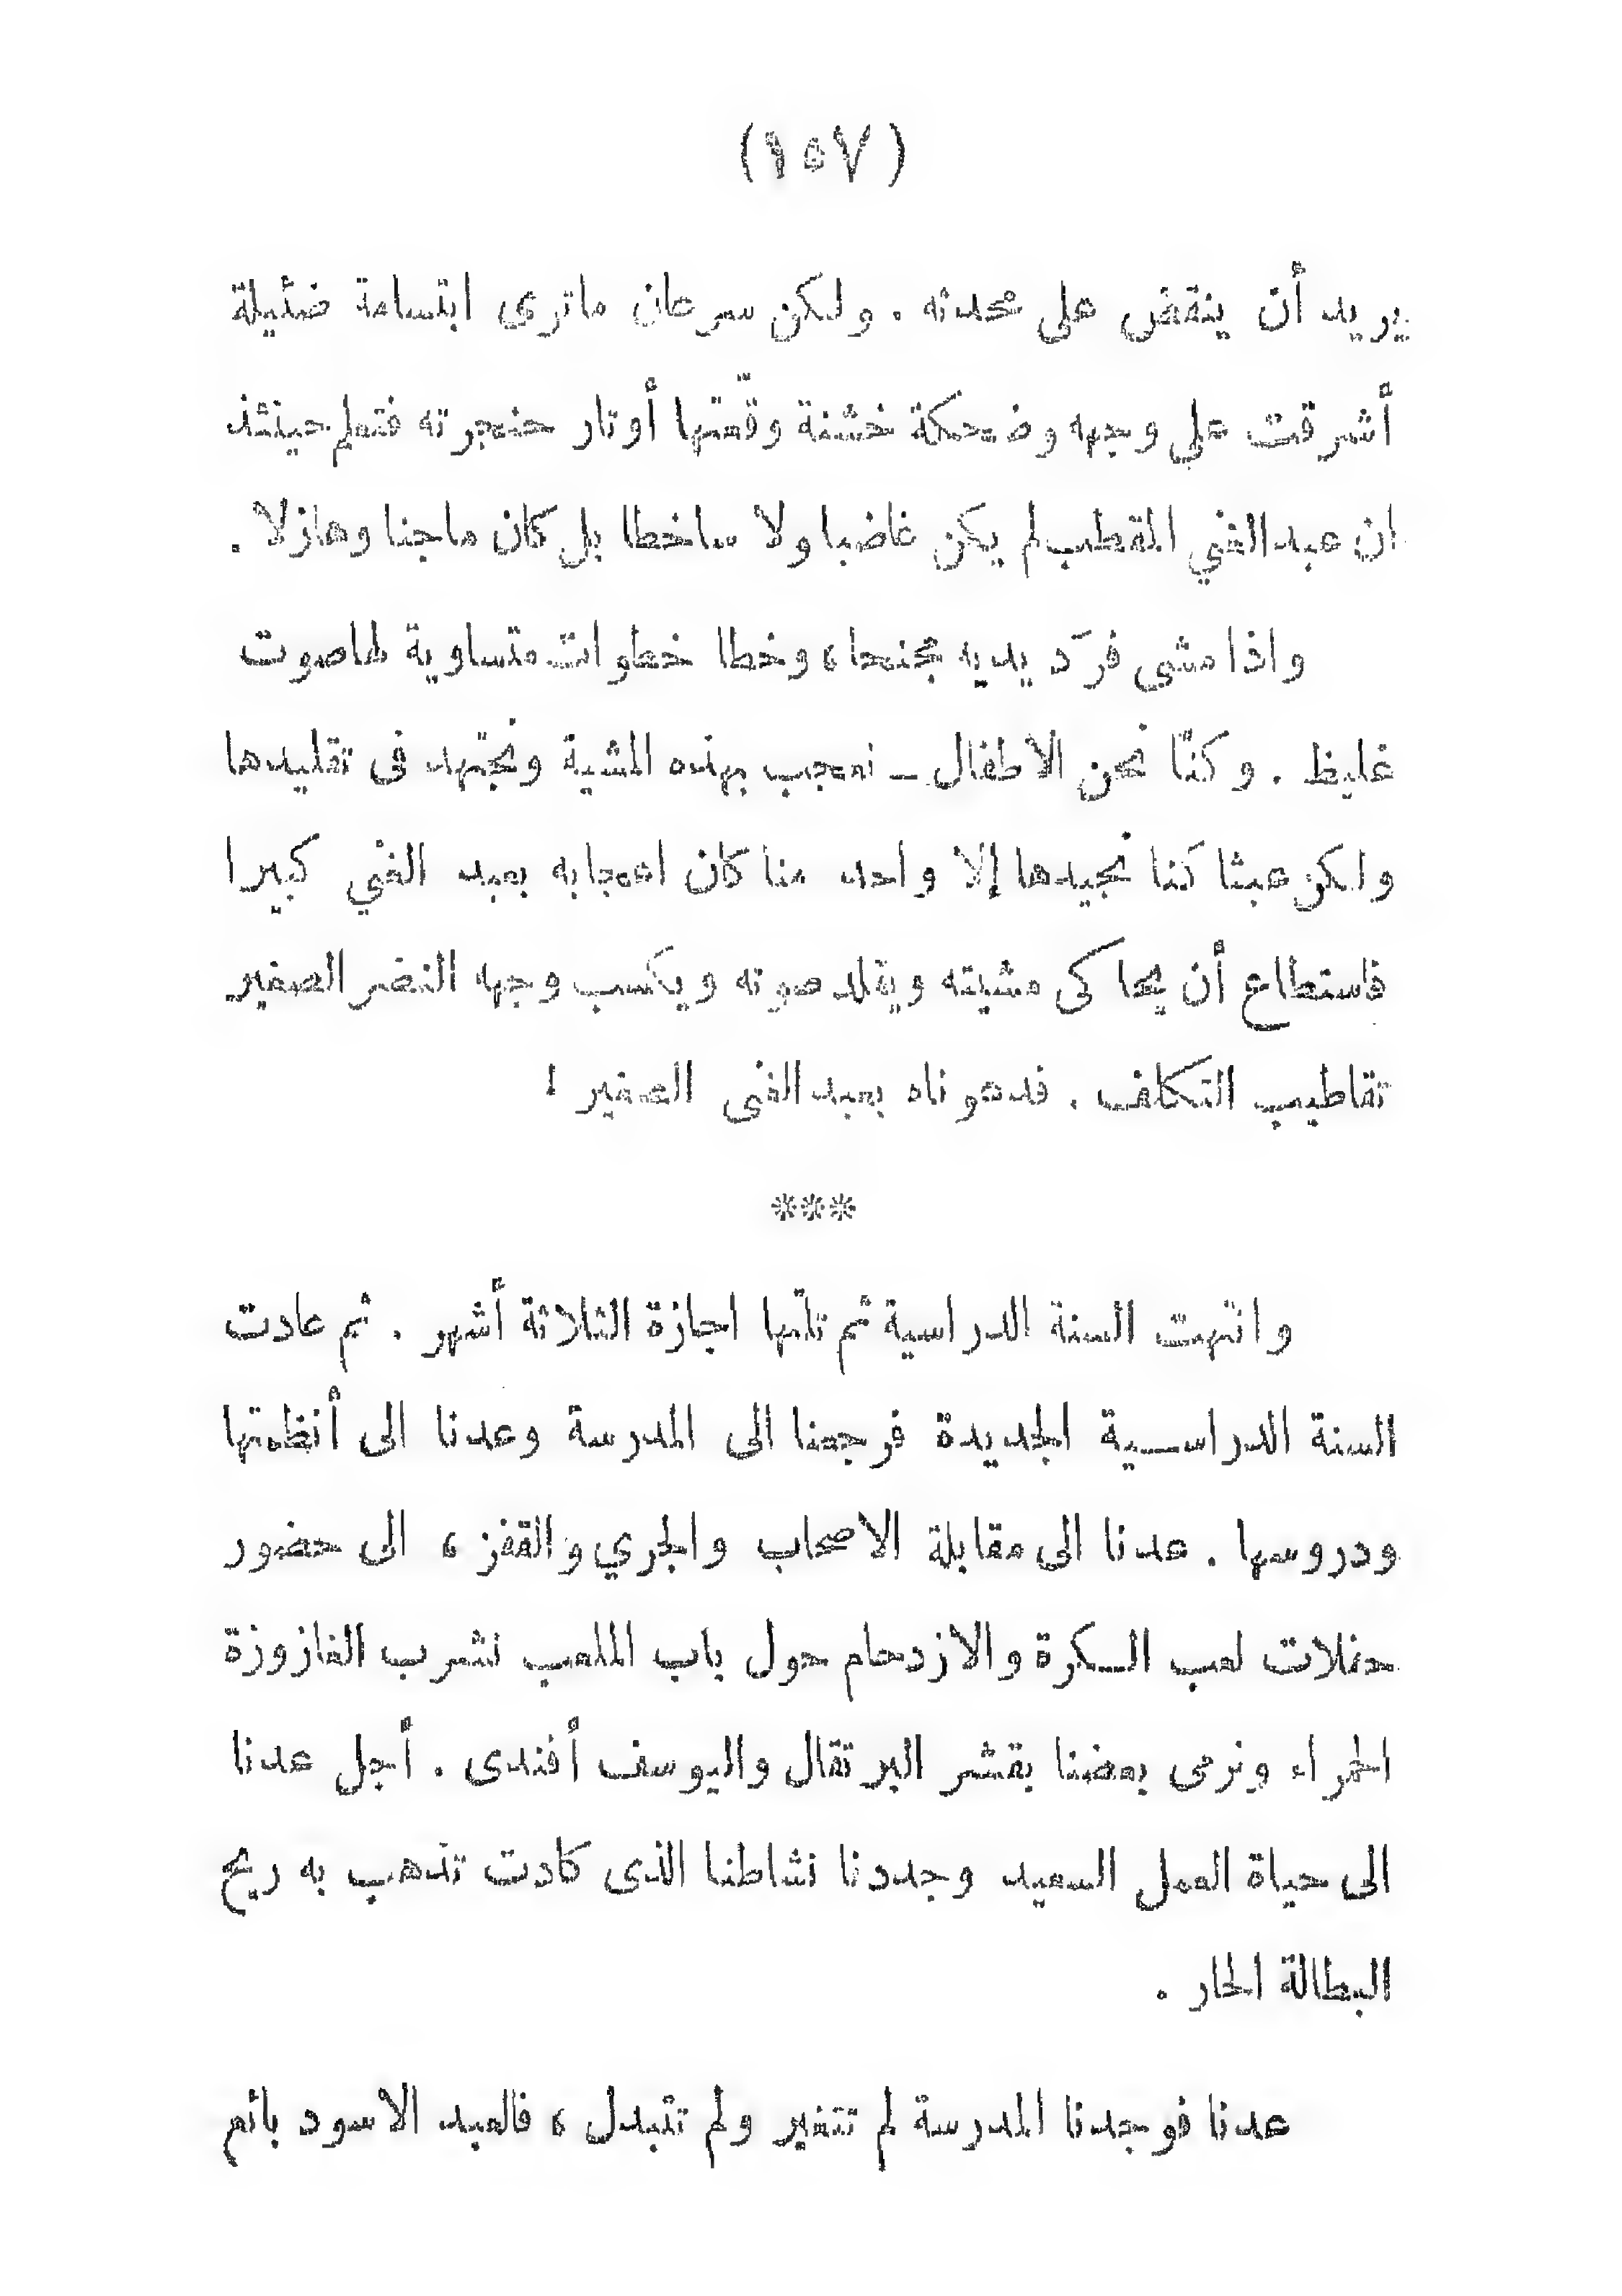 (١٥٧)
يريد أن ينقض على محدثه . ولكن سرعان ماترى ابتسامة ضئيلة
أشرقت على وجهه وضحكة خشنة وقّعتها أوتار حنجرته فتعلم حينئذ
ان عبد الغني المقطب لم يكن غاضبا ولا ساخطا بل كان ماجنا وهازلا .
واذا مشى فرَد يديه مجنحا ، وخطا خطوات متساوية لها صوت
غليظ . وكنّا نحن الاطفال ـ نعجب بهذه المشية ونجتهد فى تقليدها
ولكن عبثا كنا نجيدها إلا واحد منا كان اعجابه بعبد الغني كبيرا
فاستطاع أن يحاكى مشيته ويقلد صوته ويكسب وجهه النضر الصغير
تقاطيب التكلف . فدعوناه بعبد الغنى الصغير !
***
وانتهت السنة الدراسية ثم تلتها اجازة الثلاثة أشهر . ثم عادت
السنة الدراسية الجديدة فرجعنا الى المدرسة وعدنا الى أنظمتها
ودروسها . عدنا الى مقابلة الاصحاب والجري والقفز ، الى حضور
حفلات لعب الكرة والازدحام حول باب الملعب نشرب الغازوزة
الحمراء ونرمى بعضنا بقشر البرتقال واليوسف أفندى . أجل عدنا
الى حياة العمل السعيد وجددنا نشاطنا الذى كادت تذهب به ريح
البطالة الحار .
عدنا فوجدنا المدرسة لم تتغير ولم تتبدل ، فالعبد الاسود بائع